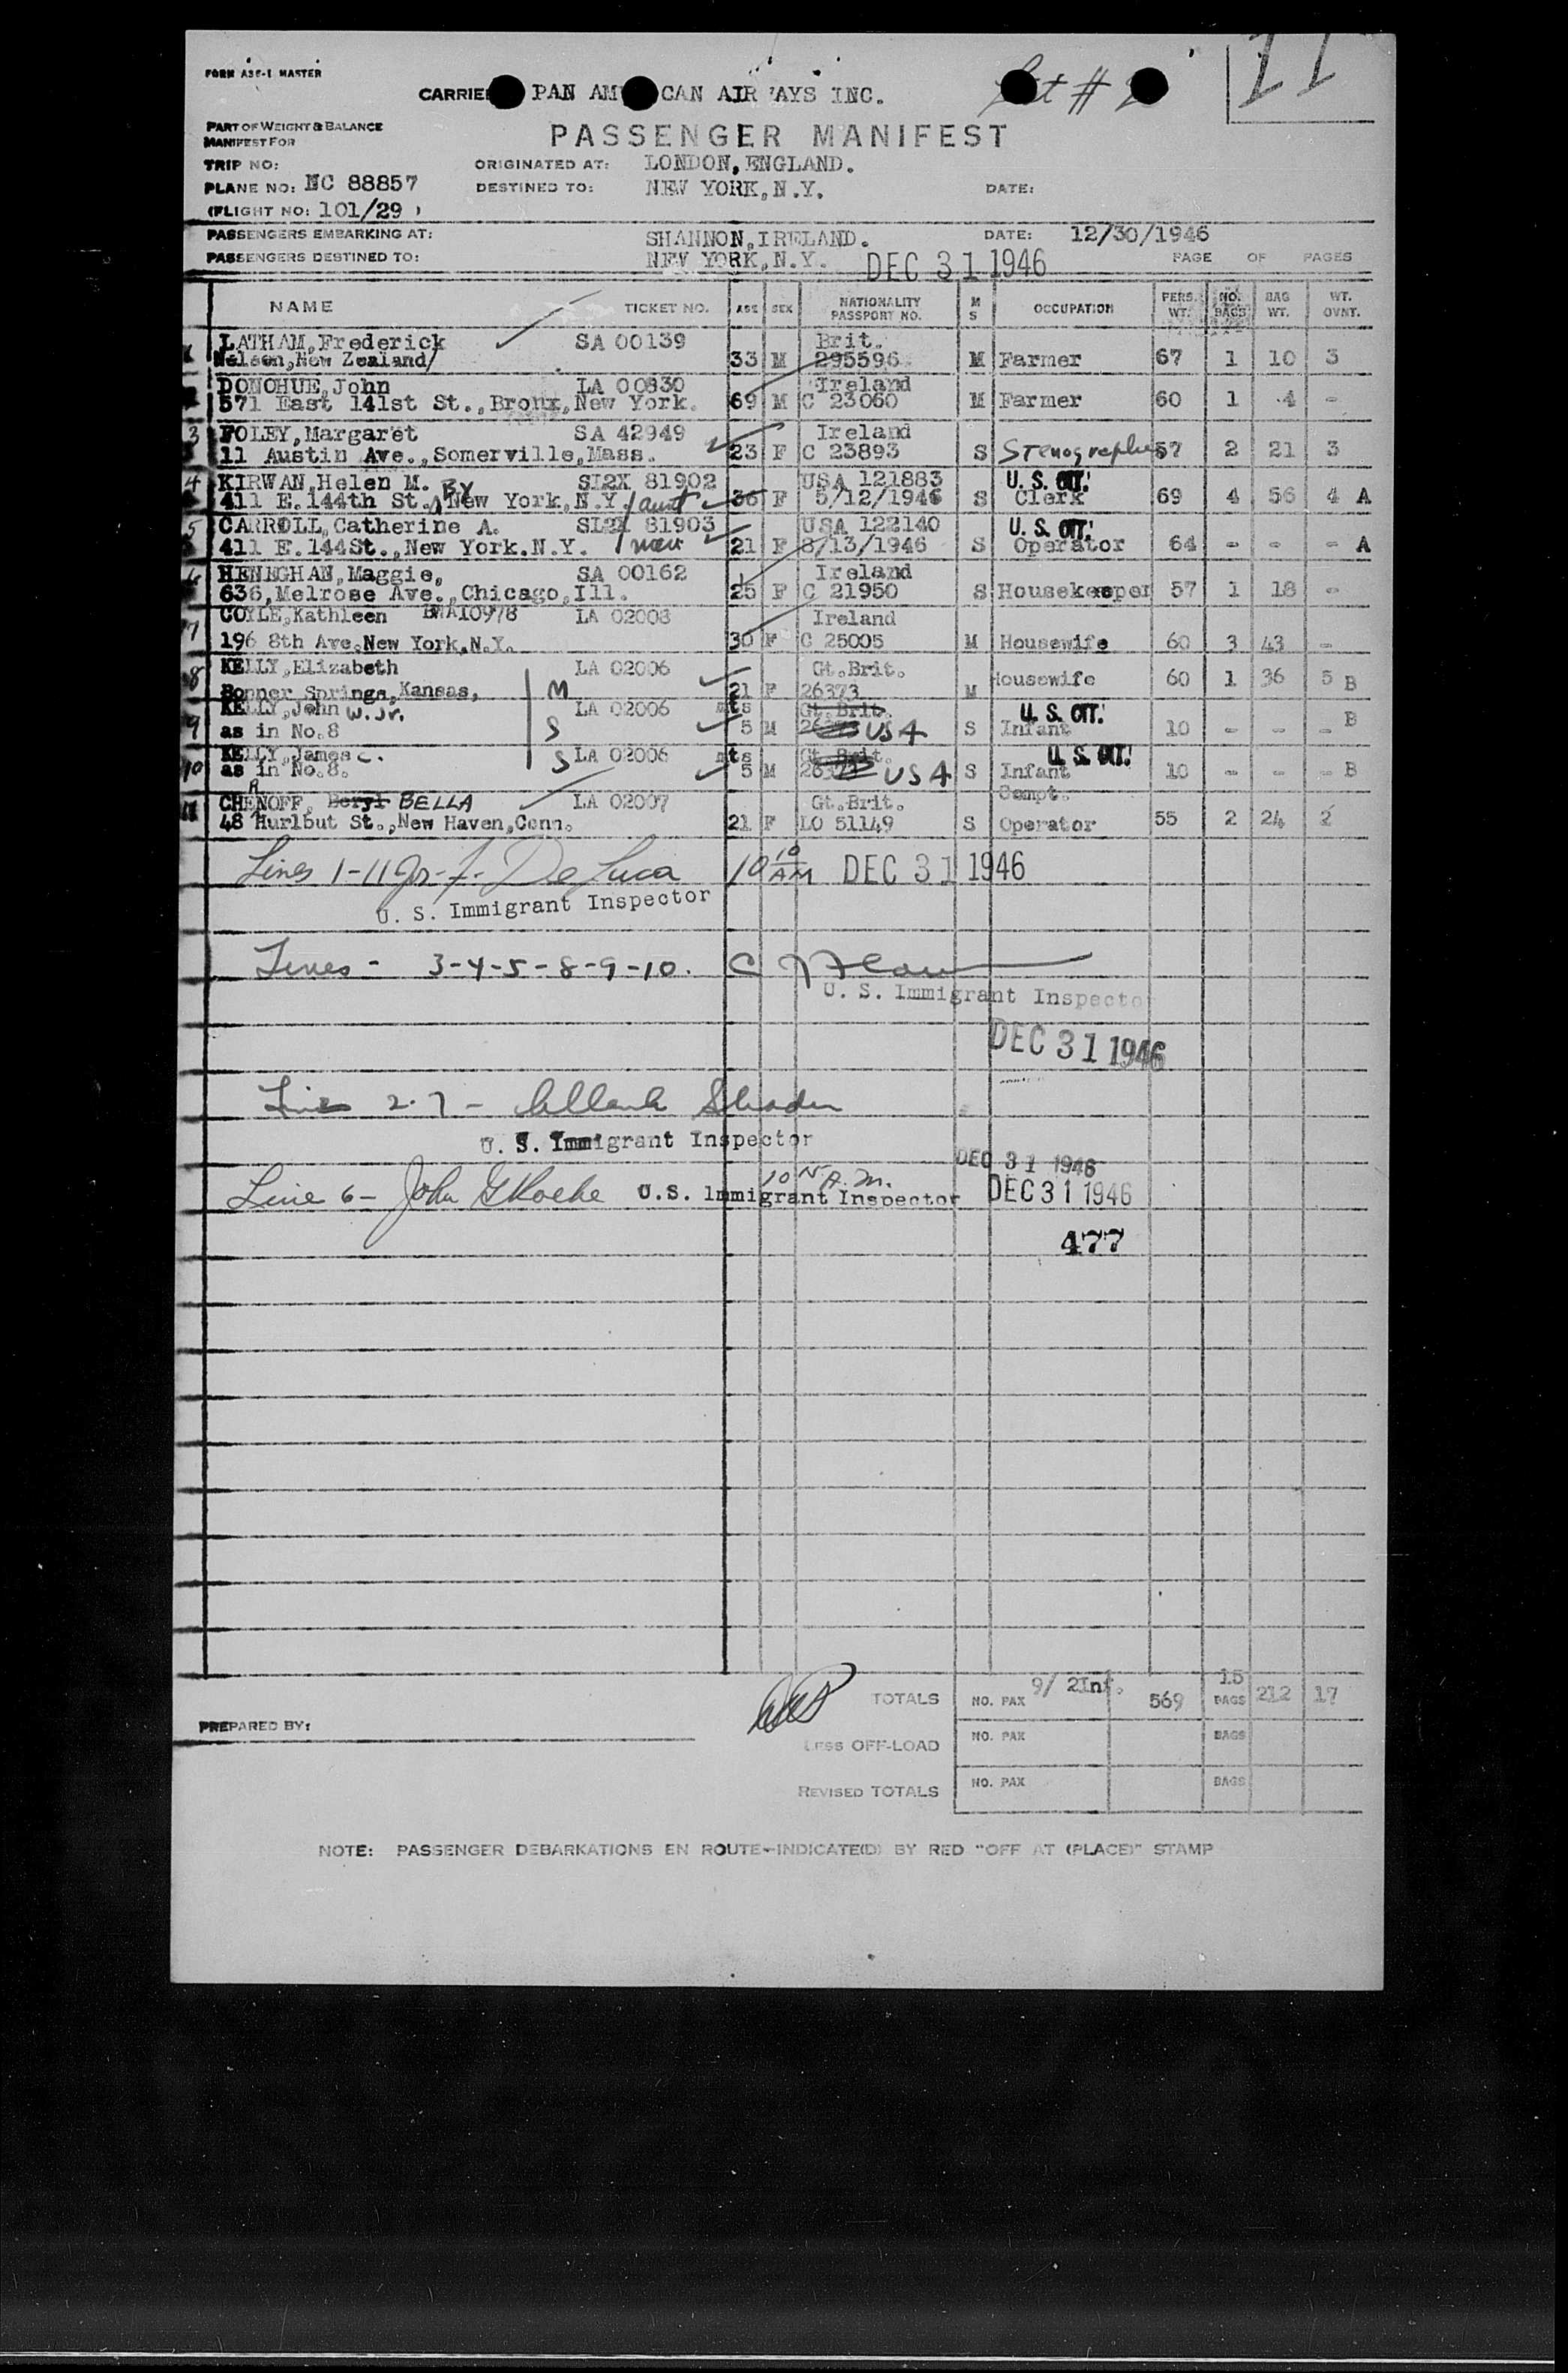 FORM A35-1 MASTER
CARRIE PAN AM CAN AIR AYS INC.
11
PART OF WEIGHT & BALANCE
MANIFEST FOR
PASSENGER MANIFEST
TRIP NO: ORIGINATED AT: LONDON,ENGLAND.
PLANE NO: NC 88857 DESTINED TO: NEW YORK,N.Y. DATE:
(FLIGHT NO: 101/29 )
PASSENGERS EMBARKING AT: SHANNON,IRELAND. DATE: 12/30/1946
PASSENGERS DESTINED TO: NEW YORK,N.Y. DEC 31 1946 PAGE OF PAGES
NAME TICKET NO. AGE SEX NATIONALITY PASSPORT NO. M S OCCUPATION PERS. WT. NO. BAGS BAG WT. WT. OVNT.
LATHAM,Frederick SA 00139 Brit.
Nelson,New Zealand/ 33 M 295596 M Farmer 67 1 10 3
DONOHUE,John LA 00830 Ireland
571 East 141st St.,Bronx,New York. 69 M C 23060 M Farmer 60 1 4 -
3 FOLEY,Margaret SA 42949 Ireland
11 Austin Ave.,Somerville,Mass. 23 F C 23893 S Stenographer 57 2 21 3
4 KIRWAN,Helen M. BX SI2X 81902 USA 121883 U. S. CIT.
411 E.144th St. New York,N.Y. /aunt 36 F 5/12/1946 S Clerk 69 4 56 4 A
5 CARROLL,Catherine A. SI2X 81903 USA 122140 U. S. CIT.
411 E.144St.,New York.N.Y. 21 F 8/13/1946 S Operator 64 - - - A
6 HENEGHAN,Maggie, SA 00162 Ireland
636,Melrose Ave.,Chicago,Ill. 25 F C 21950 S Housekeeper 57 1 18 -
7 COYLE,Kathleen LA 02008 Ireland
196 8th Ave.New York,N.Y. 30 F C 25005 M Housewife 60 3 43 -
8 KELLY,Elizabeth LA 02006 Gt.Brit.
Bonner Springs,Kansas, M 21 F 26373 M Housewife 60 1 36 5 B
9 KELLY,John W. Jr. LA 02006 mts Gt.Brit. U. S. CIT.
as in No.8 S 5 M USA S Infant 10 - - - B
10 KELLY,James C. S LA 02006 mts Gt.Brit. U. S. CIT.
as in No.8. 5 M 26373 USA S Infant 10 - - - B
11 CHENOFF, R Beryl BELLA LA 02007 Gt.Brit. Compt.
48 Hurlbut St.,New Haven,Conn. 21 F LO 51149 S Operator 55 2 24 2
Lines 1-11 De Luca 10 10 AM DEC 31 1946
U. S. Immigrant Inspector
Lines - 3-4-5-8-9-10.
U. S. Immigrant Inspector
DEC 31 1946
Lines 2-7 -
U. S. Immigrant Inspector
DEC 31 1946
Line 6 - John U.S. Immigrant Inspector 10 A.M. DEC 31 1946
477
TOTALS NO. PAX 9/ 2Inf. 569 15 BAGS 212 17
PREPARED BY:
LESS OFF-LOAD NO. PAX BAGS
REVISED TOTALS NO. PAX BAGS
NOTE: PASSENGER DEBARKATIONS EN ROUTE-INDICATE(D) BY RED "OFF AT (PLACE)" STAMP